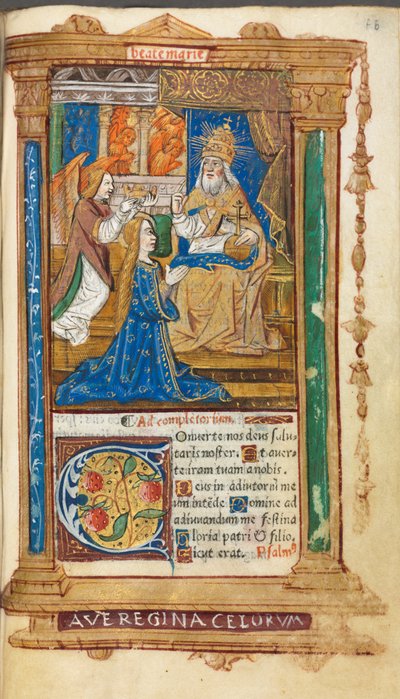 beate marie
Ad completorium.
Conuerte nos deus ſalu
taris noſter. Et auer
te iram tuam a nobis.
Deus in adiutoriū me
um intēde Domine ad
adiuuandum me feſtina
Gloria patri & filio.
Sicut erat. Pſalmꝰ
AVE REGINA CELORVM